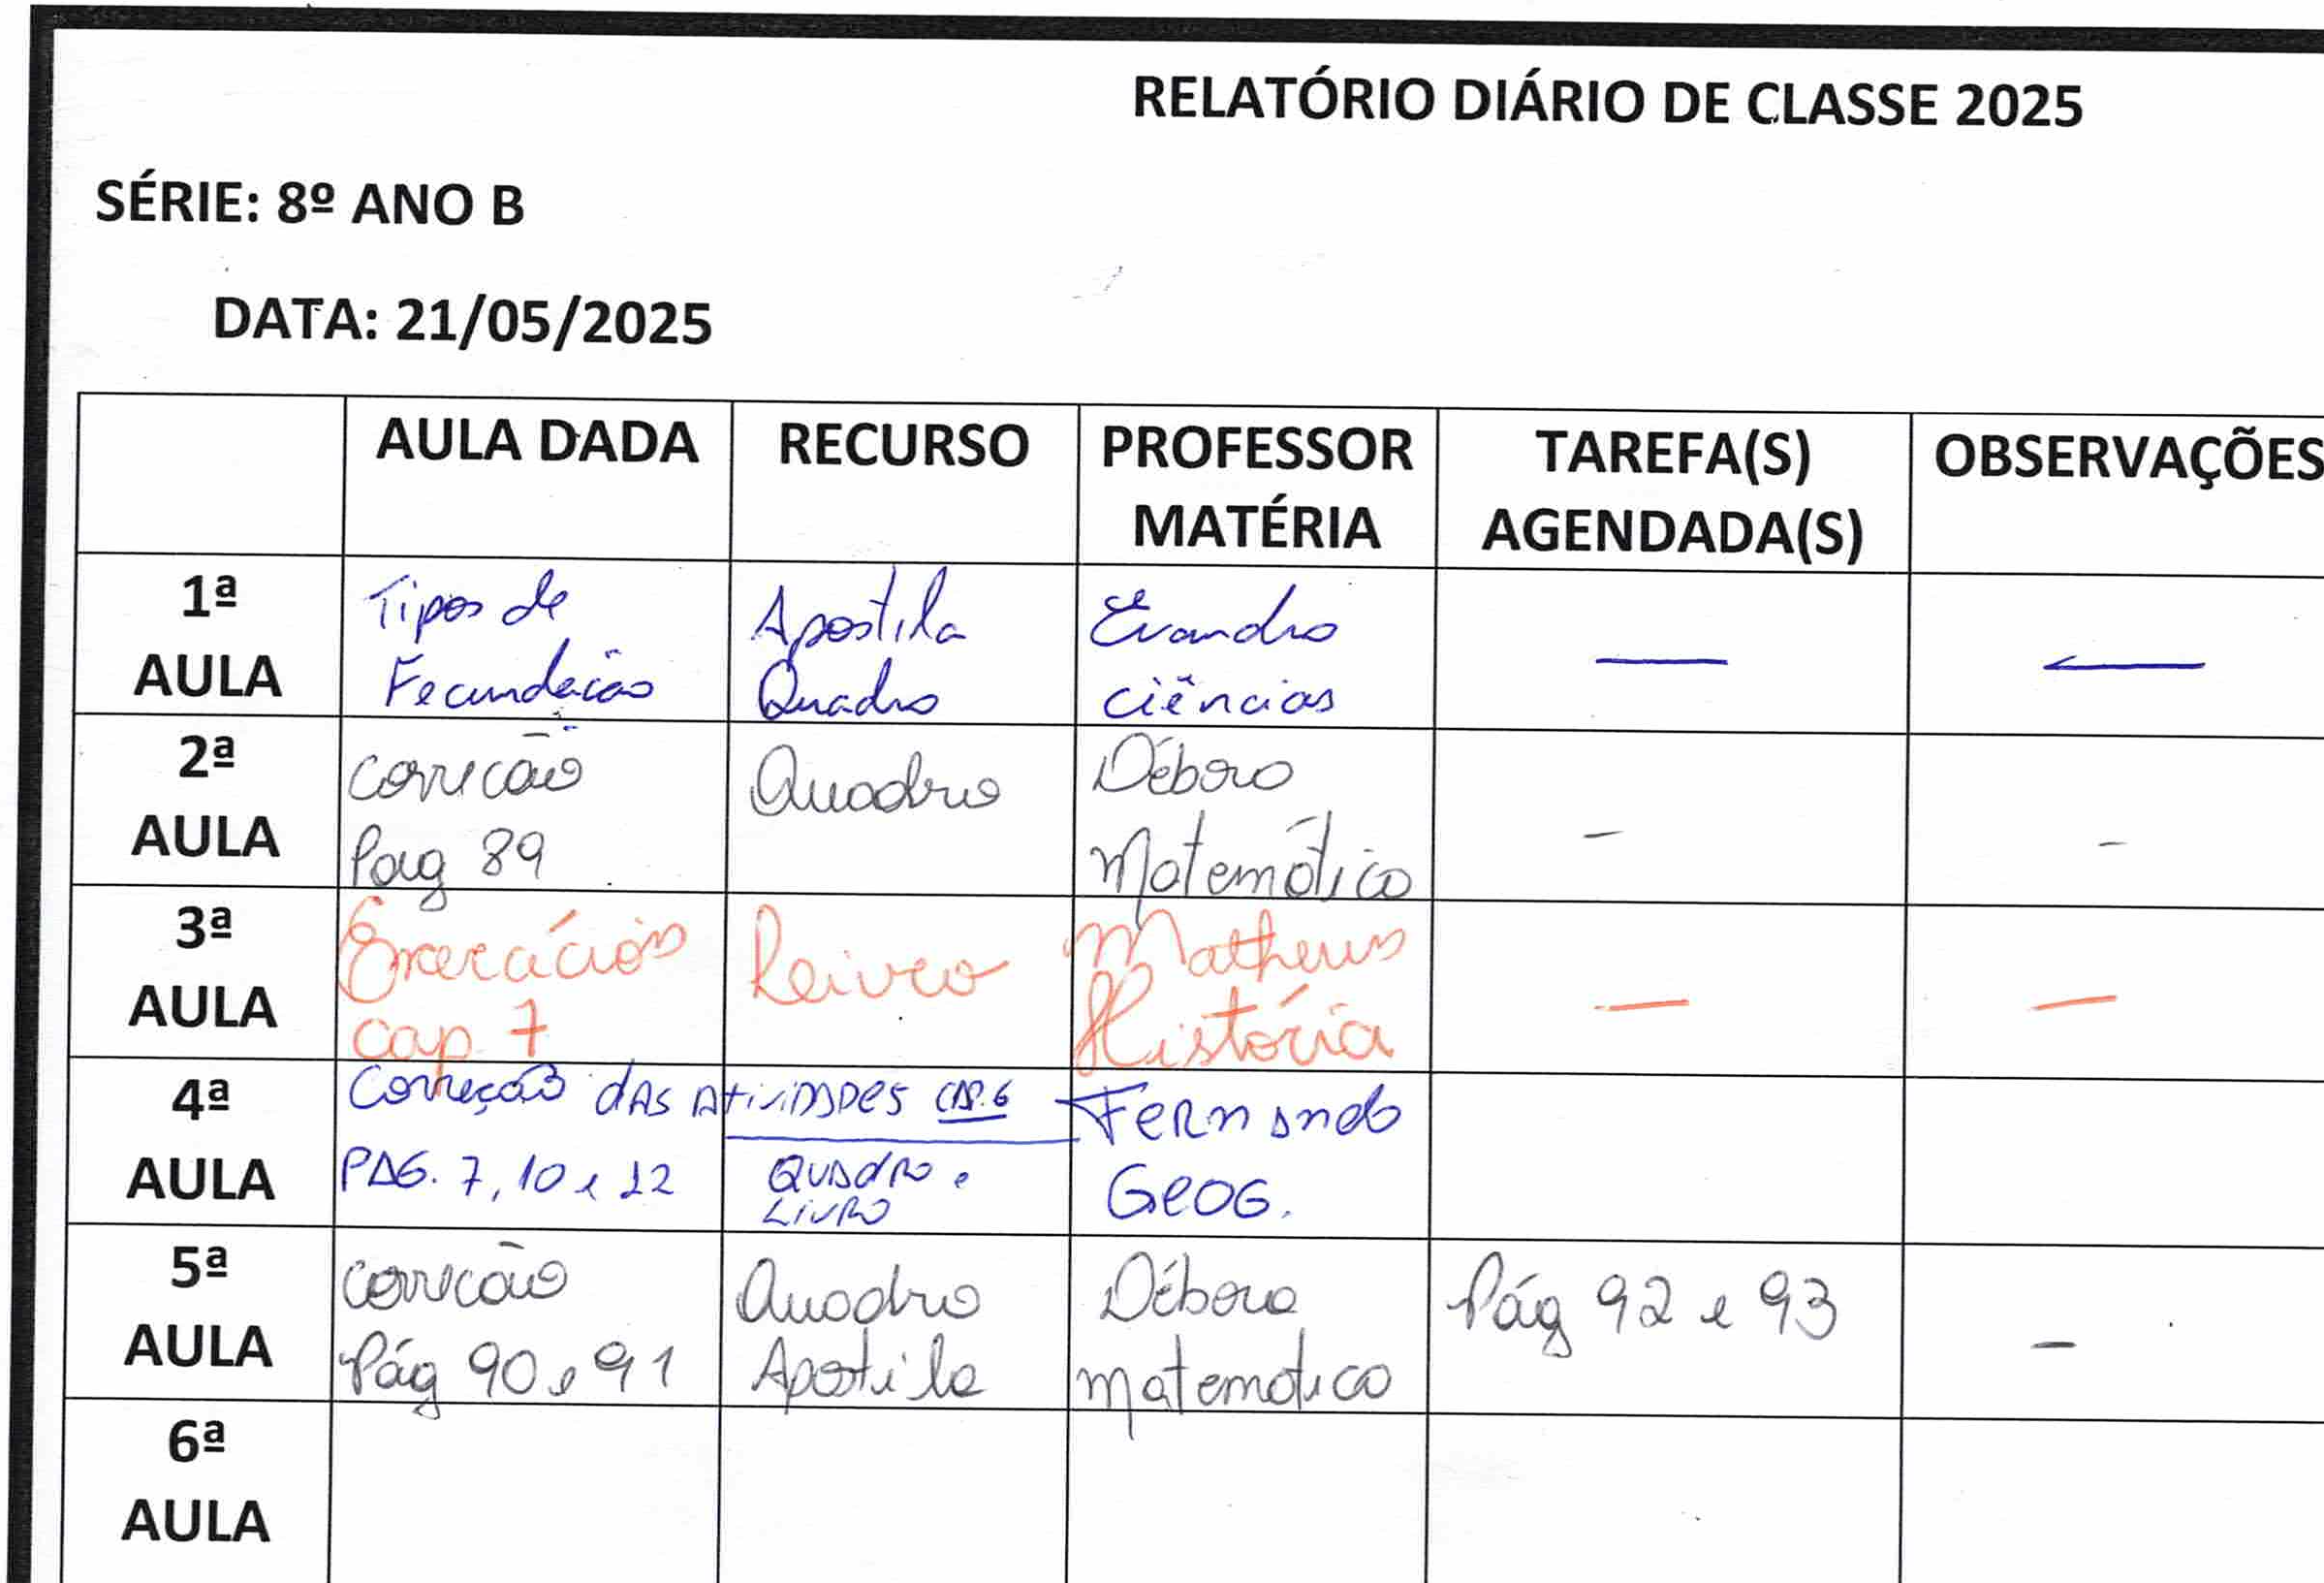 RELATÓRIO DIÁRIO DE CLASSE 2025
SÉRIE: 8º ANO B
DATA: 21/05/2025
AULA DADA RECURSO PROFESSOR MATÉRIA TAREFA(S) AGENDADA(S) OBSERVAÇÕES
1ª AULA
Tipos de
Fecundação
Apostila
Quadro
Evandro
Ciências
—
—
2ª AULA
Correcão
Pag 89
Quadro
Débora
Matemática
-
-
3ª AULA
Exercícios
cap. 7
Livro
Matheus
História
—
—
4ª AULA
Correção das Atividades CAP. 6
PÁG. 7, 10 e 12
Quadro e
Livro
Fernando
Geog.
5ª AULA
Correcão
Pág 90 e 91
Quadro
Apostila
Débora
Matematica
Pág 92 e 93
-
6ª AULA